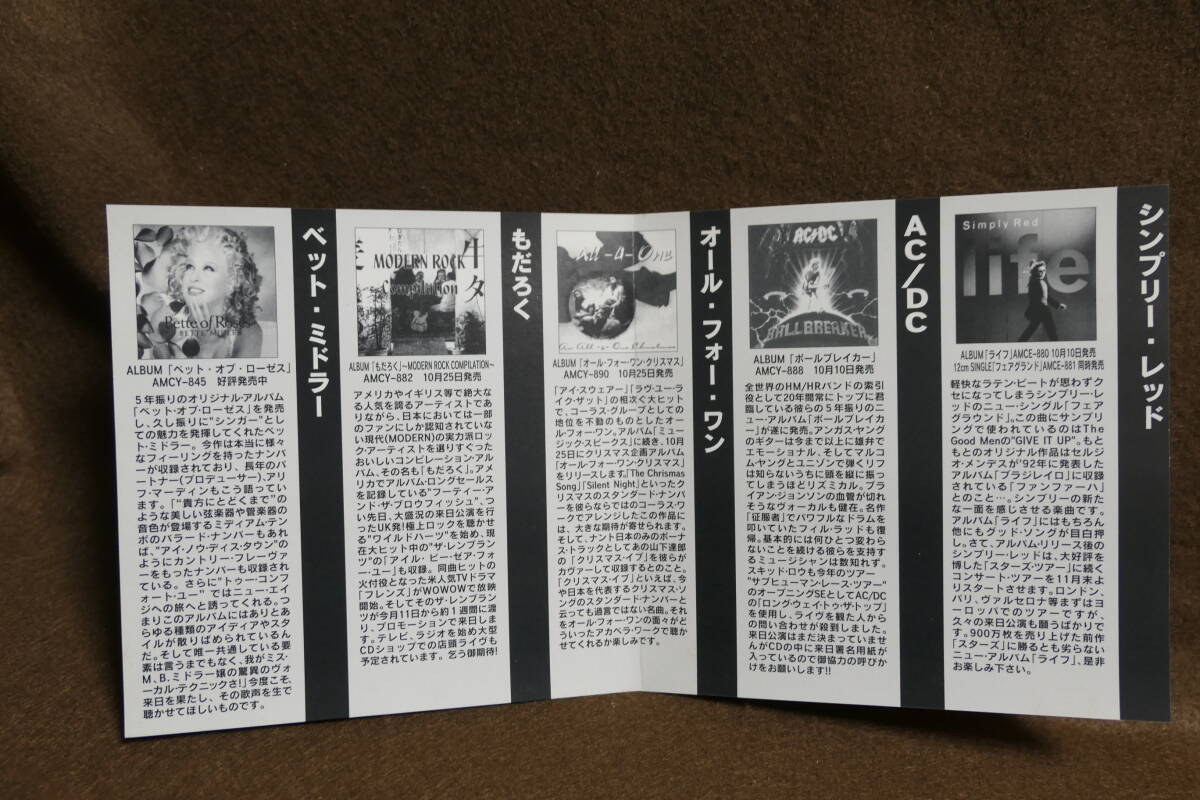 シンプリー・レッド
Simply Red
life
ALBUM「ライフ」AMCE-880 10月10日発売
12cm SINGLE「フェアグランド」AMCE-881 同時発売
軽快なラテン・ビートが思わずク
セになってしまうシンプリー・レ
ッドのニュー・シングル「フェア
グラウンド」。この曲にサンプリ
ングで使われているのはThe
Good Menの"GIVE IT UP"。もと
もとのオリジナル作品はセルジ
オ・メンデスが'92年に発表した
アルバム「ブラジレイロ」に収録
されている「ファンファーハ」
とのこと…。シンプリーの新た
な一面を感じさせる楽曲です。
アルバム「ライフ」にはもちろん
他にもグッド・ソングが目白押
し。さて、アルバム・リリース後の
シンプリー・レッドは、大好評を
博した「スターズ・ツアー」に続く
コンサート・ツアーを11月末よ
りスタートさせます。ロンドン、
パリ、ヴァルセロナ等まずはヨ
ーロッパでのツアーですが、
久々の来日公演も願うばかりで
す。900万枚を売り上げた前作
「スターズ」に勝るとも劣らない
ニュー・アルバム「ライフ」、是非
お楽しみ下さい。
AC/DC
AC/DC
BALLBREAKER
ALBUM「ボールブレイカー」
AMCY-888 10月10日発売
全世界のHM/HRバンドの索引
役として20年間常にトップに君
臨している彼らの5年振りのニ
ュー・アルバム「ボールブレイカ
ー」が遂に発売。アンガス・ヤング
のギターは今まで以上に雄弁で
エモーショナル、そしてマルコ
ム・ヤングとユニゾンで弾くリフ
は知らないうちに頭を縦に振っ
てしまうほどリズミカル。ブラ
イアン・ジョンソンの血管が切れ
そうなヴォーカルも健在。名作
「征服者」でパワフルなドラムを
叩いていたフィル・ラッドも復
帰。基本的には何ひとつ変わら
ないことを続ける彼らを支持す
るミュージシャンは数知れず。
スキッド・ロウも今年のツアー
"サブヒューマン・レース・ツアー"
のオープニングSEとしてAC/DC
の「ロング・ウェイトゥ・ザ・トップ」
を使用し、ライヴを観た人から
の問い合わせが殺到しました。
来日公演はまだ決まっていませ
んがCDの中に来日署名用紙が
入っているので御協力の呼びか
けをお願いします!!
オール・フォー・ワン
All-4-One
An All-4-One Christmas
ALBUM「オール・フォー・ワン・クリスマス」
AMCY-890 10月25日発売
「アイ・スウェアー」「ラヴ・ユー・ラ
イク・ザット」の相次ぐ大ヒット
で、コーラス・グループとしての
地位を不動のものとしたオー
ル・フォー・ワン。アルバム「ミュー
ジック・スピークス」に続き、10月
25日にクリスマス企画アルバム
「オール・フォー・ワン・クリスマス」
をリリースします。「The Chrismas
Song」「Silent Night」といったク
リスマスのスタンダード・ナンバ
ーを彼らならではのコーラス・ワ
ークでアレンジしたこの作品に
は、大きな期待が寄せられます。
そして、ナント日本のみのボーナ
ス・トラックとしてあの山下達郎
の「クリスマス・イブ」を彼らが
カヴァーして収録するとのこと。
「クリスマス・イブ」といえば、今
や日本を代表するクリスマス・ソ
ングのスタンダード・ナンバーと
云っても過言ではない名曲。それ
をオール・フォー・ワンの面々がど
ういったアカペラ・ワークで聴か
せてくれるか楽しみです。
もだろく
MODERN ROCK
Compilation
ALBUM「もだろく」〜MODERN ROCK COMPILATION〜
AMCY-882 10月25日発売
アメリカやイギリス等で絶大な
る人気を誇るアーティストであ
りながら、日本においては一部
のファンにしか認知されていな
い現代(MODERN)の実力派ロッ
ク・アーティストを選りすぐった
おいしいコンピレーション・アル
バム、その名も「もだろく」。アメ
リカでアルバム・ロングセールス
を記録している"フーティー・ア
ンド・ザ・ブロウフィッシュ"、つ
い先日、大盛況の来日公演を行
ったUK発!極上ロックを聴かせ
る"ワイルドハーツ"を始め、現
在大ヒット中の"ザ・レンブラン
ツ"の「アイル・ビー・ゼア・フォ
ー・ユー」も収録。同曲ヒットの
火付役となった米人気TVドラマ
「フレンズ」がWOWOWで放映
開始。そしてそのザ・レンブラン
ツが今月11日から約1週間に渡
り、プロモーションで来日しま
す。テレビ、ラジオを始め大型
CDショップでの店頭ライヴも
予定されています。乞う御期待!
ベット・ミドラー
Bette of Roses
BETTE MIDLER
ALBUM「ベット・オブ・ローゼス」
AMCY-845 好評発売中
5年振りのオリジナル・アルバム
「ベット・オブ・ローゼス」を発売
し、久し振りに"シンガー"とし
ての魅力を発揮してくれたベッ
ト・ミドラー。今作は本当に様々
なフィーリングを持ったナンバ
ーが収録されており、長年のパ
ートナー(プロデューサー)、アリ
フ・マーディンもこう語ってい
ます。「"貴方にとどくまで"の
ような美しい弦楽器や管楽器の
音色が登場するミディアム・テン
ポのバラード・ナンバーもあれ
ば、"アイ・ノウ・ディス・タウン"の
ようにカントリー・フレーヴァ
ーをもったナンバーも収録され
ている。さらに"トゥー・コンフ
ォート・ユー"ではニュー・エイ
ジへの旅へと誘ってくれる。つ
まりこのアルバムにはありとあ
らゆる種類のアイディアやスタ
イルが散りばめられているん
だ。そして唯一共通している要
素は言うまでもなく、我がミス・
M、B.ミドラー嬢の驚異のヴォ
ーカル・テクニックさ!」今度こそ、
来日を果たし、その歌声を生で
聴かせてほしいものです。